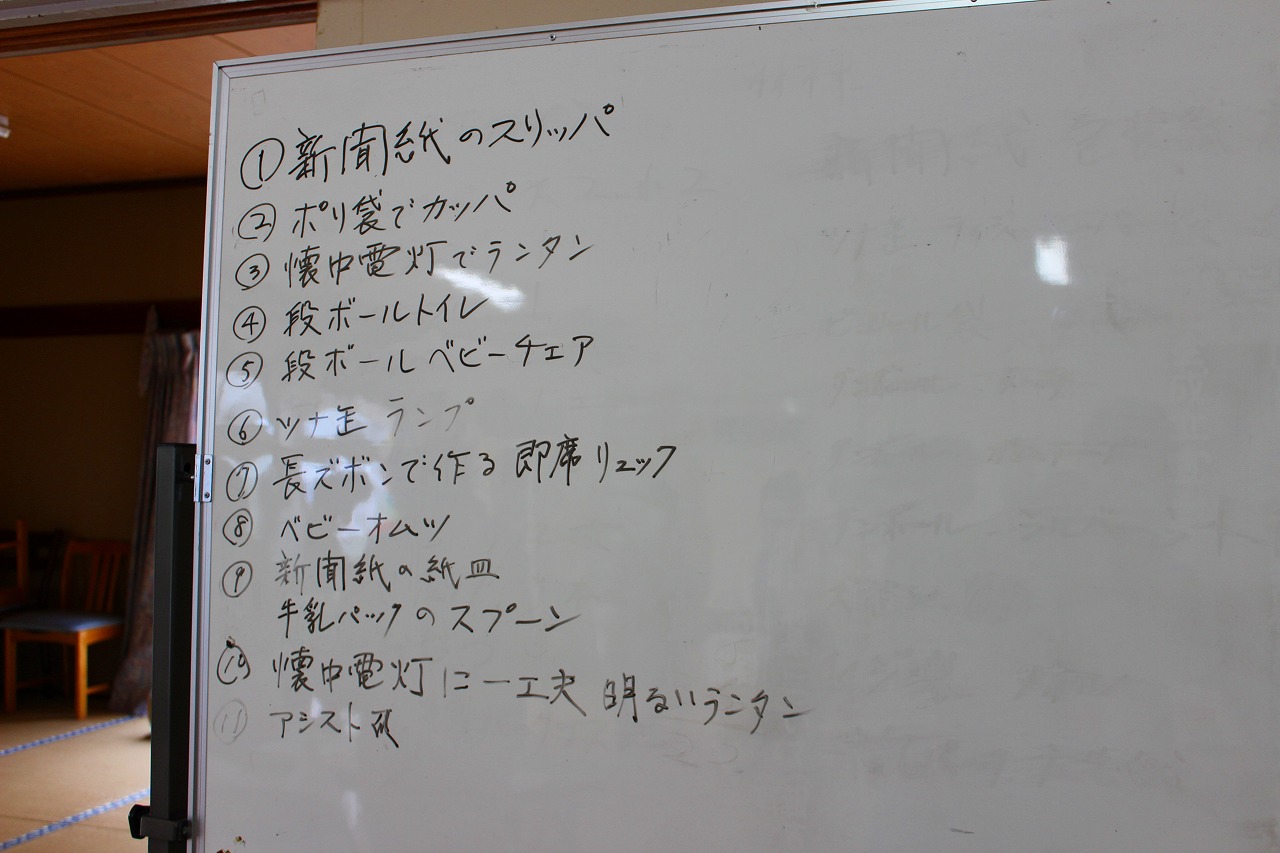 ① 新聞紙のスリッパ
② ポリ袋でカッパ
③ 懐中電灯でランタン
④ 段ボールトイレ
⑤ 段ボール ベビーチェア
⑥ ツナ缶 ランプ
⑦ 長ズボンで作る 即席リュック
⑧ ベビーオムツ
⑨ 新聞紙の紙皿
牛乳パックのスプーン
⑩ 懐中電灯に一工夫 明るいランタン
⑪ アシスト